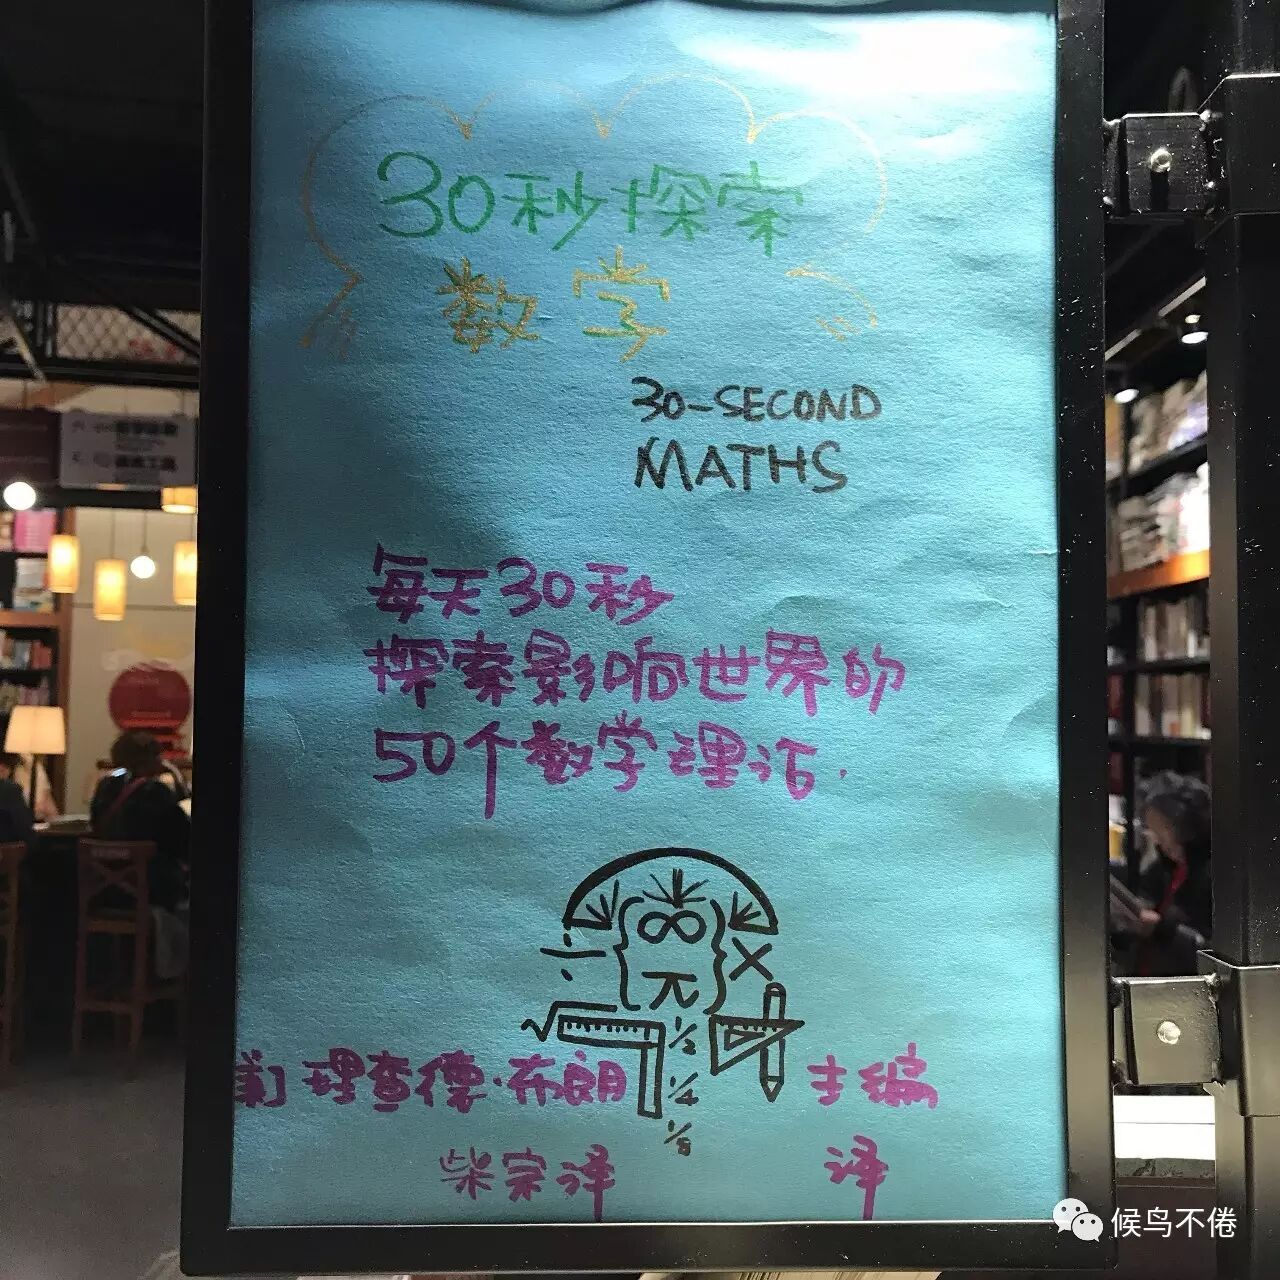 30秒探索
数学
30-SECOND
MATHS
每天30秒
探索影响世界的
50个数学理论.
÷ ∞ ×
π
√ 1/2
1/4
1/8
[美]理查德·布朗 主编
柴宗泽 译
候鸟不倦